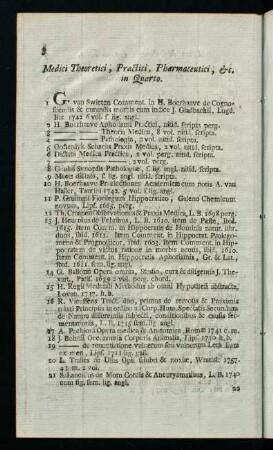 Medici Theoretici, Practici, Pharmaceutici, &c.
in Quarto.
1 G. van Swieten Comment. in H. Boerhaave de Cognoscendis & curandis morbis cum indice J. Gladbachii, Lugd.
Bat 1742 6 vol. f lig. angl.
2 H. Boerhaave Aphorismi Practici, nitid. scripta perg.
3 —— Theoria Medica, 8 vol. nitid. scripta.
4 —— Pathologia, 2 vol. nitid. scripta.
5 Oosterdyk Schacht Praxis Medica, 2 vol. nitid. scripta.
6 Dictata Medica Practica, 2 vol. perg. nitid. scripta.
8 Grubii Synopsis Pathologiae, nitid. scripta perg.
9 Moses dictatis, f. lig. angl. nitid. scripta.
10 H. Boerhaave Praelectiones Academicae cum notis A. van
Haller, Taurini 1742. 5 vol. f lig. angl.
11 P. Grulingi Florilegium Hippocratico, Galeno Chemicum
novum, Lipf. 1665. perg.
12 Th. Cranen Observationes & Praxis Medica, L. B. 1698 perg.
13 J. Heurnius de Febribus, L. B. 1610. item de Peste, ibid.
1615. Item Com. in Hippocratis de Hominis natur. librum, ibid. 1615. Item Comment. in Hippocrat. Prolegomena & Prognostica, ibid. 1603. Item Comment. in Hippocratem de victus ratione in morbis acutis, ibid. 1609.
Item Comment. in Hippocratis Aphorismis, Gr. & Lat.
ibid. 1611. f lig. angl.
14 G. Ballonii Opera omnia, Studio, cura & diligentia J. Thevart, Paris. 1639 2 vol. perg. chord.
25 H. Regii Methodus ab omni Hypothesi abstracta,
Lovan. 1737. h. b.
16 R. Vieussens Tract. duo, primus de remotis & Proximis
mixti Principiis in ordine ad Corp. Hum. Spectatis secundus
de Natura differentiis subjectis, conditionibus & causis fermentationis, L. B. 1715 sem. lig. angl.
17 A. Pachioni Opera medica & Anatomica, Romae 1741 c. m.
18 J. Bohnii Oeconomia Corporis Animalis, Lips. 1710 h. b.
19 —— de renunciatione vulnerum seu vulnerum Leth. Examen, Lipf. 1711 lig. angl.
20 L. Tralles de Usu Opii salubri & noxio, Wratisl. 1757.
4 t. m. 2 vol.
21 de Motu Cordis & Aneurysmatibus, L. B. 1740
cum fig. sem. lig. angl.
22